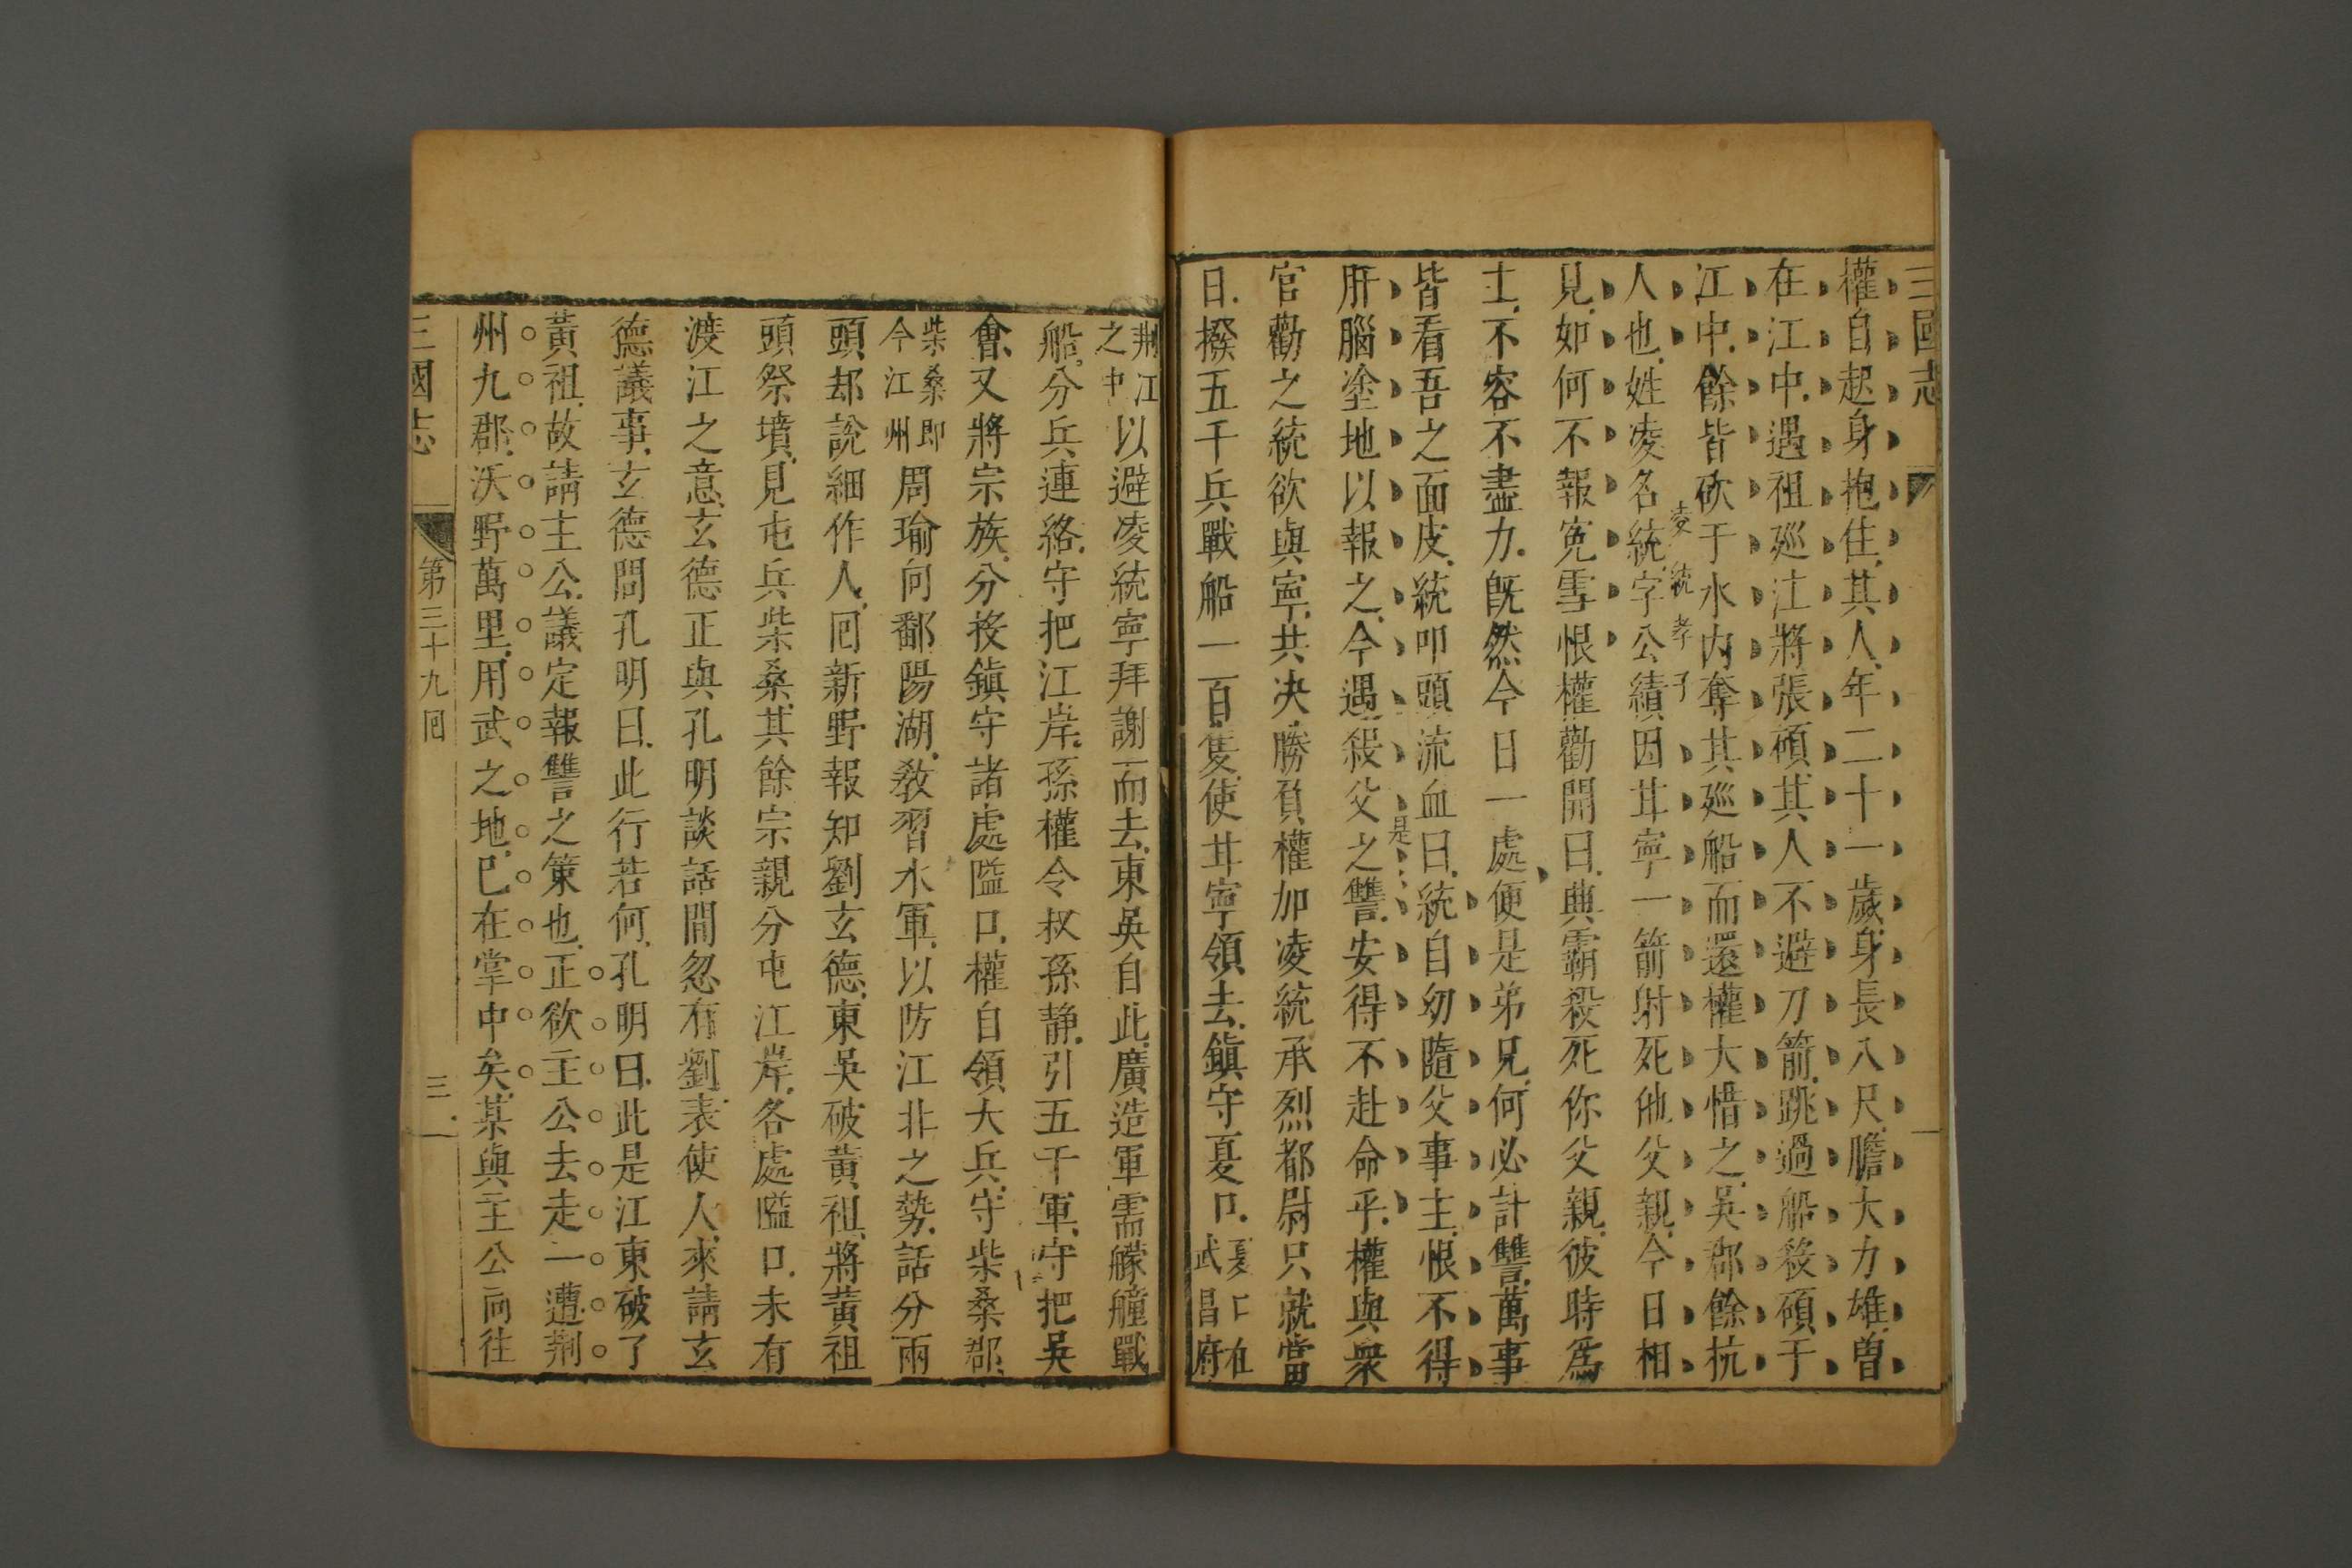 三國志
權自起身抱住其人年二十一歲身長八尺膽大力雄曾
在江中遇祖廵江將張碩其人不避刀箭跳過船殺碩于
江中餘皆砍于水内奪其廵船而還權大惜之吳郡餘杭
人也姓凌名統字公績因甘寧一箭射死他父親今日相
凌統孝子
見如何不報寃雪恨權勸開曰典霸殺死你父親彼時爲
士不容不盡力旣然今日一處便是弟兄何必計讐萬事
皆看吾之面皮統叩頭流血曰統自幼隨父事主恨不得
是
肝腦塗地以報之今遇殺父之讐安得不赴命乎權與衆
官勸之統欲與寧共决勝負權加凌統承烈都尉只就當
日撥五千兵戰船一百隻使甘寧領去鎮守夏口夏口在武昌府
荆江之中以避凌統寧拜謝而去東吳自此廣造軍需艨艟戰
船分兵連絡守把江岸孫權令叔孫静引五千軍守把吳
會又將宗族分投鎮守諸處隘口權自領大兵守柴桑郡
柴桑即今江州周瑜向鄱陽湖教習水軍以防江非之勢話分兩
頭却說細作人囘新野報知劉玄德東吳破黄祖將黄祖
頭祭墳見屯兵柴桑其餘宗親分屯江岸各處隘口未有
渡江之意玄德正與孔明談話間忽有劉表使人來請玄
德議事玄德問孔明曰此行若何孔明曰此是江東破了
黃祖故請主公議定報讐之策也正欲主公去走一遭荆
州九郡沃野萬里用武之地已在掌中矣某與主公同往
三國志 第三十九囘 三